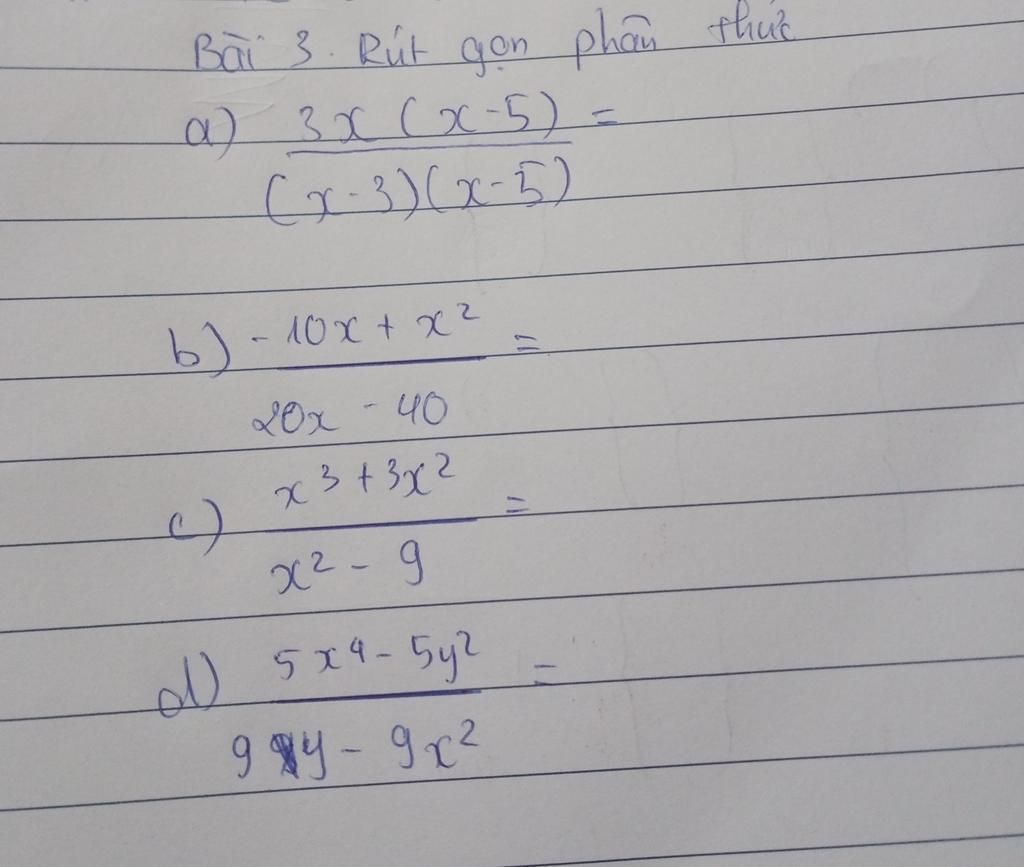 Bài 3. Rút gọn phân thức
a) 3x(x-5) =
(x-3)(x-5)
b) -10x + x² =
20x - 40
c) x³ + 3x² =
x² - 9
d) 5x⁴ - 5y² =
9y - 9x²